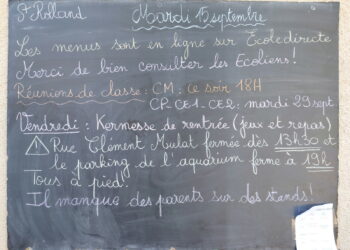 St Rolland
Mardi 15 septembre
Les menus sont en ligne sur Ecoledirecte
Merci de bien consulter les Ecoliens!
Réunions de classe : CM : ce soir 18H
CP. CE1. CE2 : mardi 29 sept
Vendredi : Kermesse de rentrée (jeux et repas)
! Rue Clément Mulat fermée dès 13h30 et
le parking de l'aquarium ferme à 19h
Tous à pied!
Il manque des parents sur des stands!